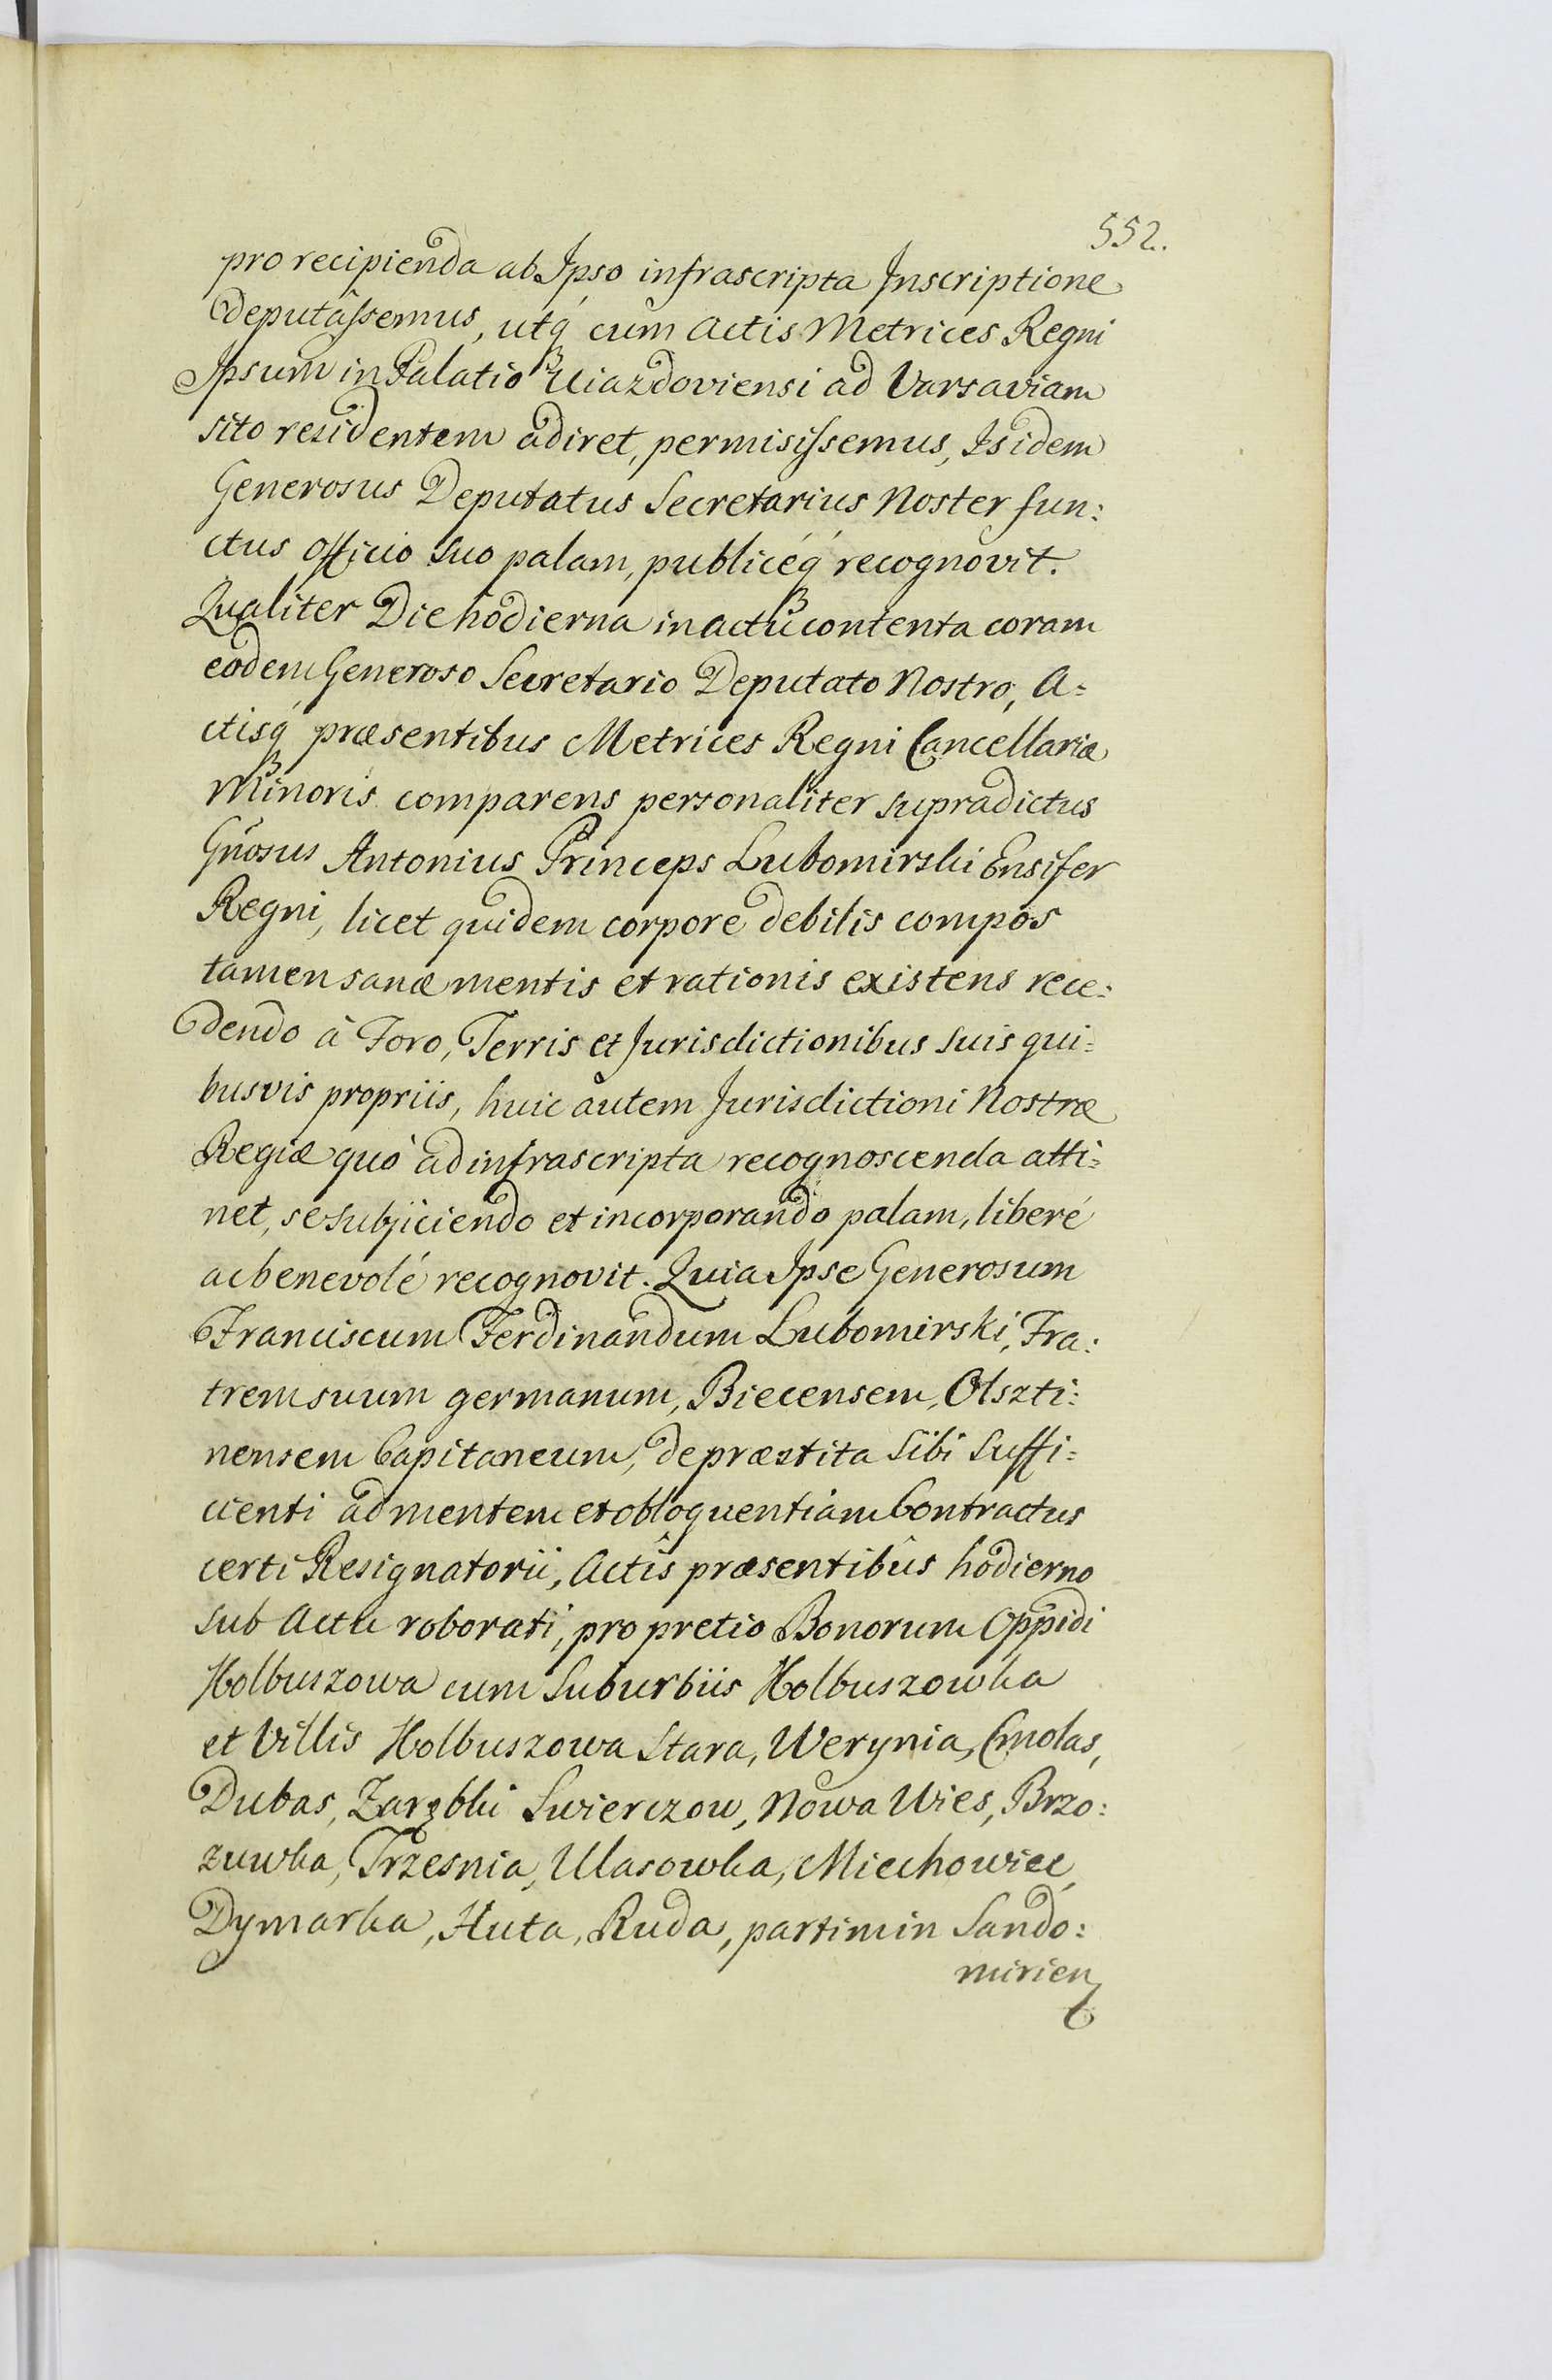 552.
pro recipienda ab Ipso infrascripta Inscriptione
deputâssemus, utq́ cum Actis Metrices Regni
Ipsum in Palatio Uiazdoviensi ad Varsaviam
sito residentem adiret, permisissemus, Is idem
Generosus Deputatus Secretarius Noster fun:
ctus officio suo palam, publicéq́ recognovit.
Qualiter Die hodierna in actu contenta coram
eodem Generoso Secretario Deputato Nostro, A:
ctisq́ præsentibus Metrices Regni Cancellariæ
Minoris comparens personaliter supradictus
Gnosus Antonius Princeps Lubomirski Ensifer
Regni, licet quidem corpore debilis compos
tamen sanæ mentis et rationis existens rece:
dendo à Foro, Terris et Jurisdictionibus suis qui:
busvis propriis, huic autem Jurisdictioni Nostræ
Regiæ quò ad infrascripta recognoscenda atti:
net, se subjiciendo et incorporando palam, liberé
ac benevolé recognovit. Quia Ipse Generosum
Franciscum Ferdinandum Lubomirski, Fra:
trem suum germanum, Biecensem, Olszti:
nensem Capitaneum, de præstita sibi suffi:
cienti ad mentem et obloquentiam Contractus
certi Resignatorii, Actis præsentibus hodierno
sub Actu roborati, pro pretio Bonorum Oppidi
Kolbuszowa cum Suburbiis Kolbuszowka
et Villis Kolbuszowa Stara, Werynia, Cmolas,
Dubas, Zarębki Swierczow, Nowa Wies, Brzo:
zuwka, Trzesnia, Ulasowka, Miechowiec,
Dymarka, Huta, Ruda, partim in Sando:
mirien